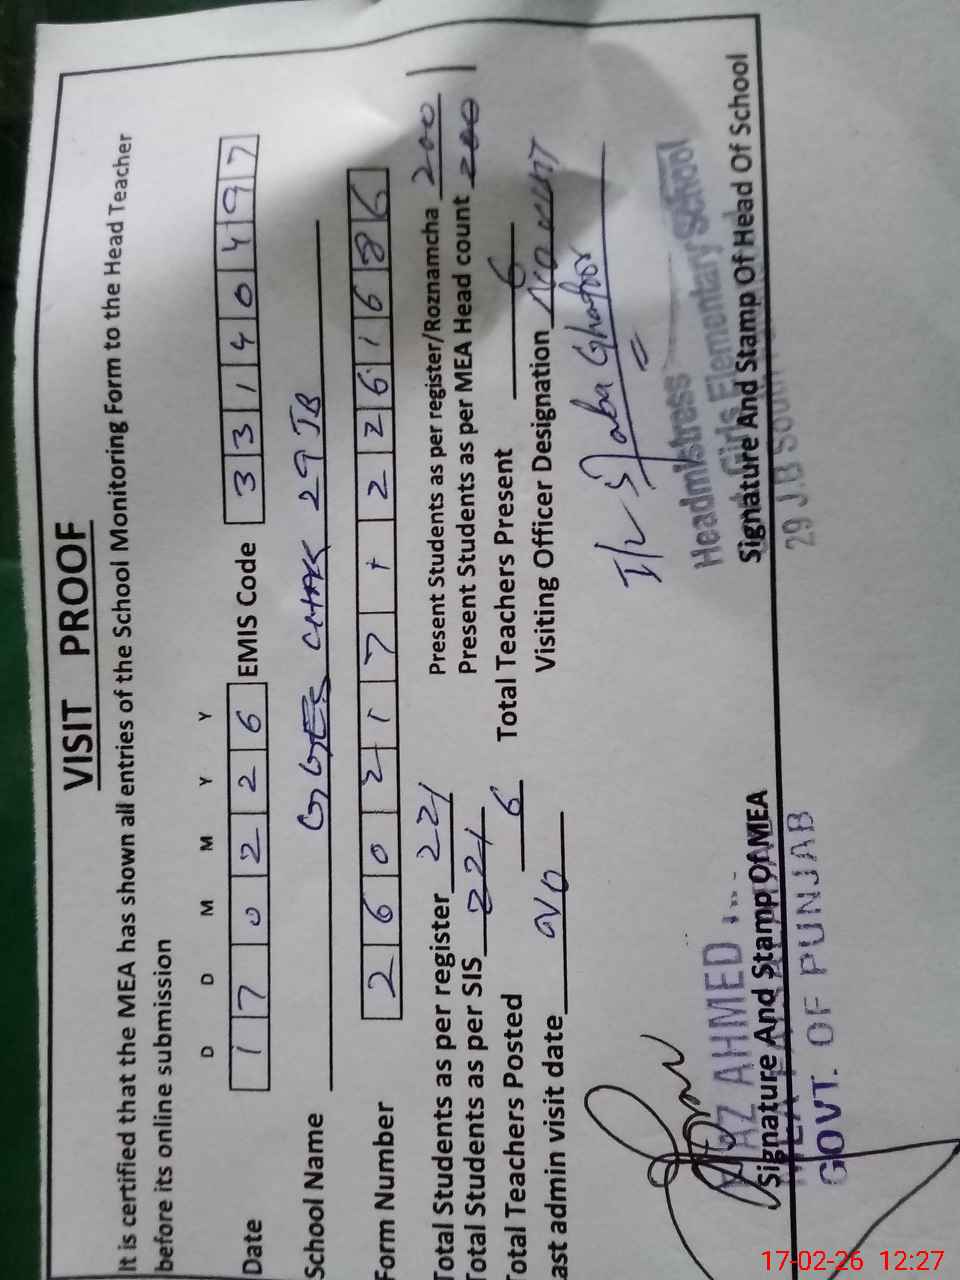 VISIT PROOF
It is certified that the MEA has shown all entries of the School Monitoring Form to the Head Teacher
before its online submission
D D M M Y Y
Date 1 7 0 2 2 6 EMIS Code 3 3 1 4 0 4 9 7
School Name CHAK 29 JB
Form Number 2 6 0 2 1 7 + 2 2 6 1 6 8 6
Total Students as per register 221 Present Students as per register/Roznamcha 200
Total Students as per SIS 221 Present Students as per MEA Head count 200
Total Teachers Posted 6 Total Teachers Present 6
ast admin visit date Visiting Officer Designation
Saba Ghafoor
AZ AHMED
Headmistress
Girls Elementary School
Signature And Stamp Of MEA Signature And Stamp Of Head Of School
GOVT. OF PUNJAB
29 J.B
17-02-26 12:27